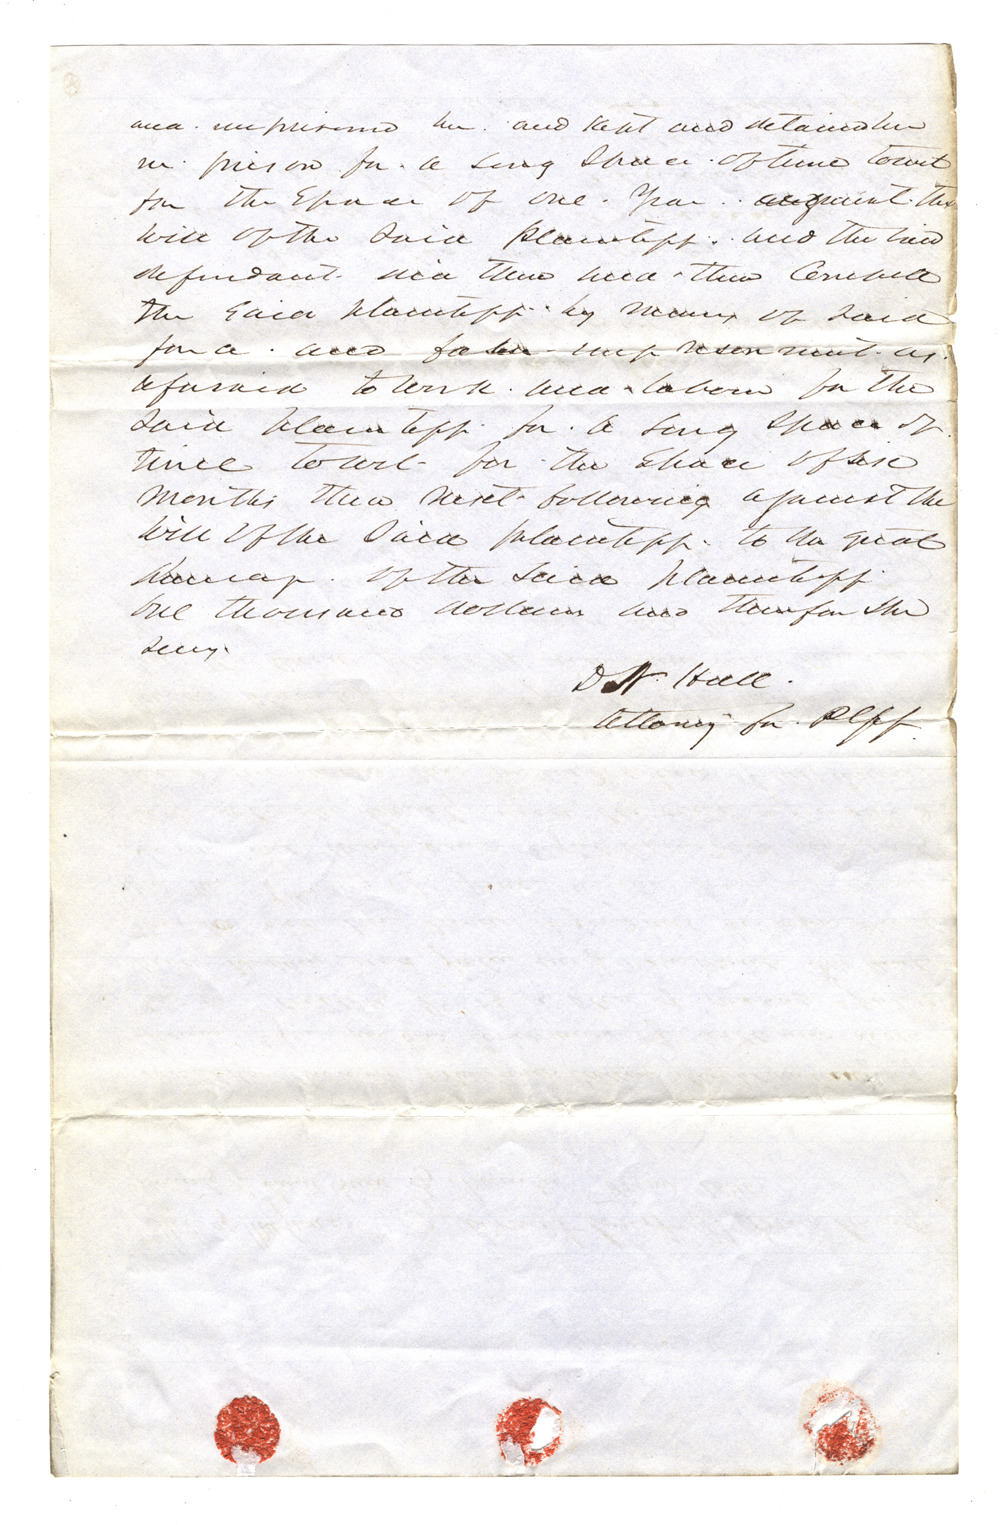 and imprisoned her and kept and detained her
in prison for a long Space of time towit
for the Space of one Year against the
will of the Said Plaintiff. and the said
defendant did then and then Compell
the Said plaintiff by means of Said
force and false imprisonment as
aforsaid to work and labour for the
Said plaintiff for a long Space of
time towit for the Space of six
Months then next following against the
Will of the Said plaintiff to the great
damage of the Said plaintiff
One thousand dollars and therefor She
sues.
D N. Hall.
Attorney for Plff.